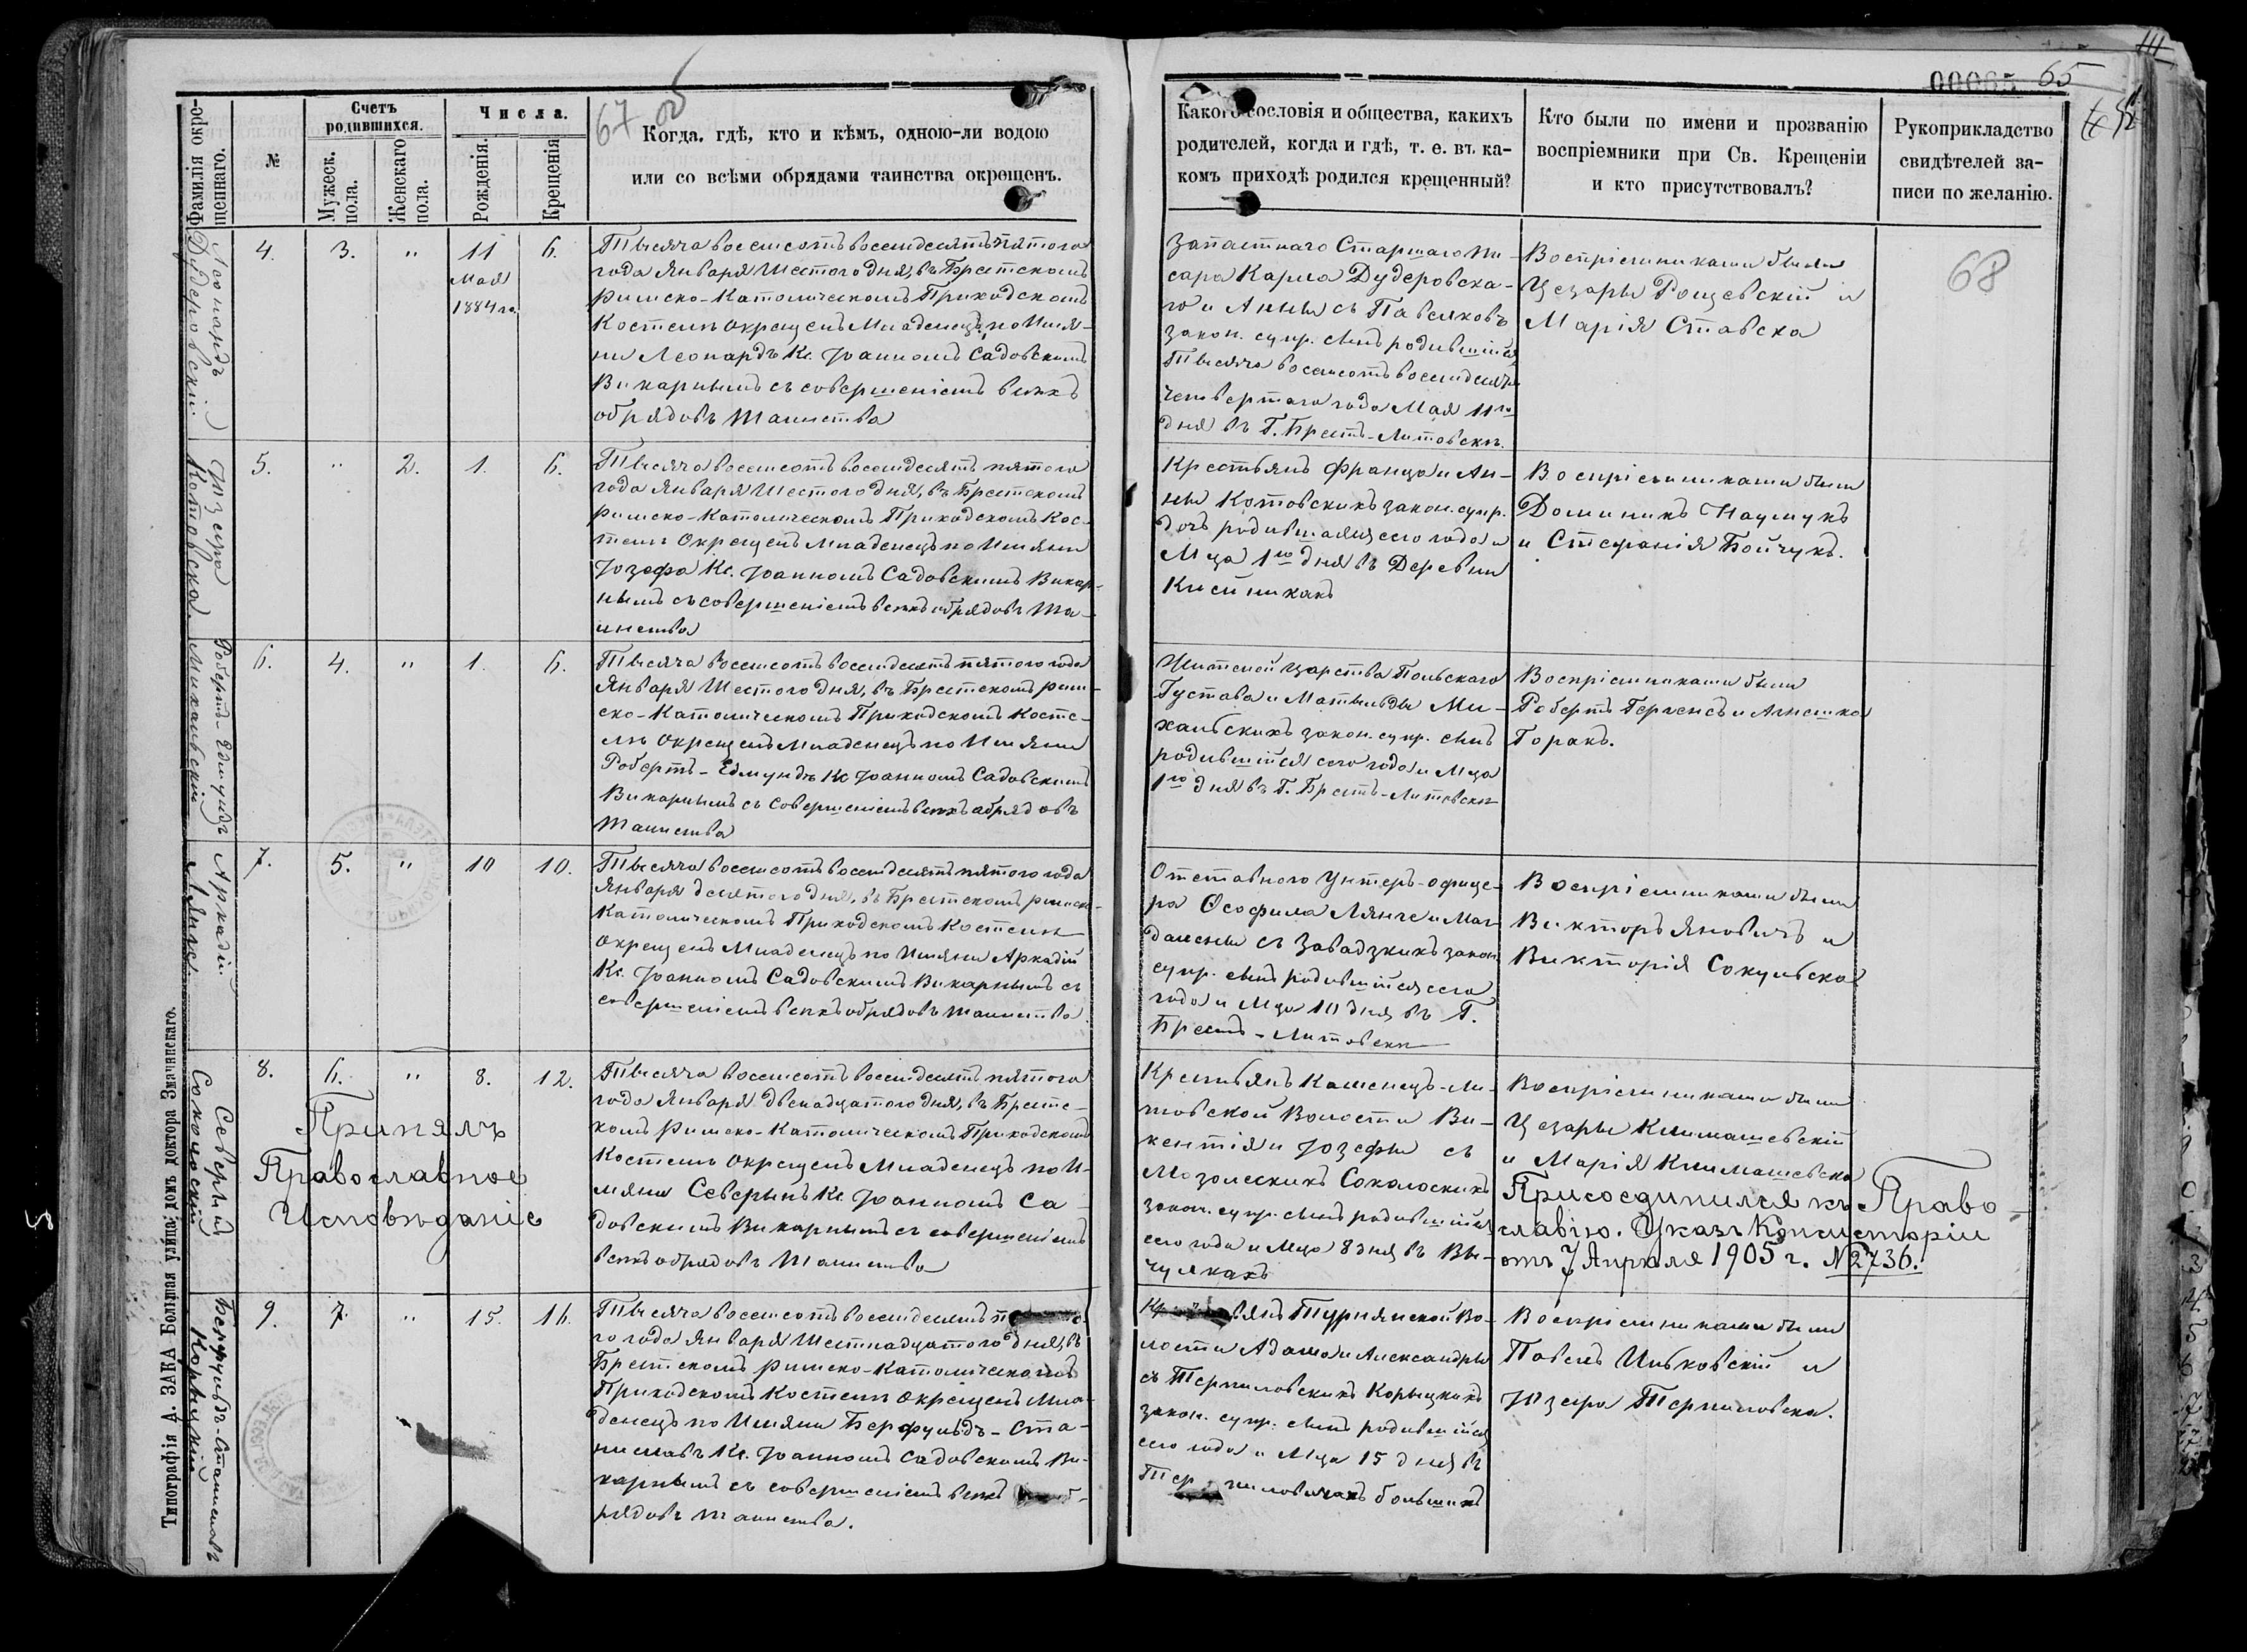 Фамилія окре-
щеннаго.
№
Счетъ
родившихся.
Мужеск.
пола.
Женскаго
пола.
Числа.
Рожденія.
Крещенія
67 об
Когда, гдѣ, кто и кѣмъ, одною-ли водою
или со всѣми обрядами таинства окрещенъ.
Леонардъ
Дудеровскій
4.
3.
"
11
Мая
1884 го
6.
Тысяча восемсотъ восемдесятъ пятого
года Января Шестого дня, въ Брестскомъ
Римско-Католическомъ Приходскомъ
Костелѣ окрещенъ Младенецъ по Имя-
ни Леонардъ Кс. Іоанномъ Садовскимъ
Викарнымъ съ совершеніемъ всѣхъ
обрядовъ Таинства
Юзефа
Котовска.
5.
"
2.
1.
6.
Тысяча восемсотъ восемдесятъ пятого
года Января Шестого дня, въ Брестскомъ
Римско-Католическомъ Приходскомъ Кос-
телѣ Окрещенъ Младенецъ по Имяни
Іозефа Кс. Іоанномъ Садовскимъ Викар-
нымъ съ совершеніемъ всѣхъ обрядовъ Та-
инства
Робертъ-Едмундъ
Михальскій
6.
4.
"
1.
6.
Тысяча восемсотъ восемдесятъ пятого года
Января Шестого дня, въ Брестскомъ Рим-
ско-Католическомъ Приходскомъ Косте-
лѣ Окрещенъ Младенецъ по Имяни
Робертъ-Едмундъ Кс Іоанномъ Садовскимъ
Викарнымъ съ Совершеніемъ всѣхъ обрядовъ
Таинства
Аркадій
Лянге
7.
5.
"
10
10.
Тысяча восемсотъ восемдесятъ пятого года
Января десятого дня, въ Брестскомъ Римско-
Католическомъ Приходскомъ Костелѣ
Окрещенъ Младенецъ по Имяни Аркадій
Кс. Іоанномъ Садовскимъ Викарнымъ съ
совершеніемъ всѣхъ обрядовъ таинства
Северинъ
Соколоскій
8.
6.
"
8.
12.
Принялъ
Православное
Исповѣданіе
Тысяча восемсотъ восемдесятъ пятого
года Января двенадцатого дня, въ Брестс-
комъ Римско-Католическомъ Приходскомъ
Костелѣ окрещенъ Младенецъ по И-
мяни Северынъ Кс Іоанномъ Са-
довскимъ Викарнымъ съ совершеніемъ
всѣхъ обрядовъ Таинства
Берфульдъ-Станиславъ
Корыцкій
9.
7.
"
15.
16.
Тысяча восемсотъ восемдесятъ
го года Января Шестнадцатого дня, въ
Брестскомъ Римско-Католическомъ
Приходскомъ Костелѣ окрещенъ Мла-
денецъ по Имяни Берфульдъ-Ста-
ниславъ Кс. Іоанномъ Садовскимъ Ви-
карнымъ съ совершеніемъ всѣхъ об-
рядовъ Таинства.
Типографія А. ЗАКА Большая улица, домъ доктора Значинскаго.
00065 65
Какого сословія и общества, какихъ
родителей, когда и гдѣ, т. е. въ ка-
комъ приходѣ родился крещенный?
Кто были по имени и прозванію
воспріемники при Св. Крещеніи
и кто присутствовалъ?
Рукоприкладство
свидѣтелей за-
писи по желанію.
68
Запастнаго Старшаго Пи-
сара Карла Дудеровска-
го и Анны съ Павляковъ
закон. супр. сынъ родившійся
Тысяча восемсотъ восемдесятъ
четвертаго года Мая 11го
дня въ Г. Брестъ-Литовскѣ.
Воспріемниками были
Цезары Рощевскій и
Марія Ставска
Крестьянъ Франца и Ан-
ны Котовскихъ закон. супр.
дочь родившаяся сего года и
М-ца 1го дня въ Деревни
Воспріемниками были
Доминикъ Наумукъ
и Стефанія Бойчукъ.
Жителей Царства Польскаго
Густава и Матыльды Ми-
хальскихъ закон. супр. сынъ
родившійся сего года и М-ца
1го дня въ Г. Брестъ-Литовскѣ
Воспріемниками были
Робертъ Гергенсъ и Агнешка
Горакъ.
Отставного Унтеръ-офице-
ра Ѳеофила Лянге и Маг-
далены съ Завадзкихъ закон
супр. сынъ родившійся сего
года и М-ца 10 дня въ Г.
Брестъ-Литовскѣ
Воспріемниками были
Викторъ Яновичъ и
Викторія Сокульска
Крестьянъ Каменецъ-Ли-
товской Волости Ви-
кентія и Іозефы съ
Мозолескихъ Соколоскихъ
закон. супр. сынъ родившійся
сего года и М-ца 8 дня въ Вы-
чулкахъ
Воспріемниками были
Цезары Климашевскій
и Марія Климашевска
Присоединился къ Право-
славію. Указъ Консисторіи
отъ 7 Апрѣля 1905 г. №2736.
Турнянской Во-
лости Адама и Александры
съ Терпиловскихъ Корыцкихъ
закон. супр. сынъ родившійся
сего года и М-ца 15 дня въ
большихъ
Воспріемниками были
Павелъ Ильковскій и
Юзефа Терпиловска.